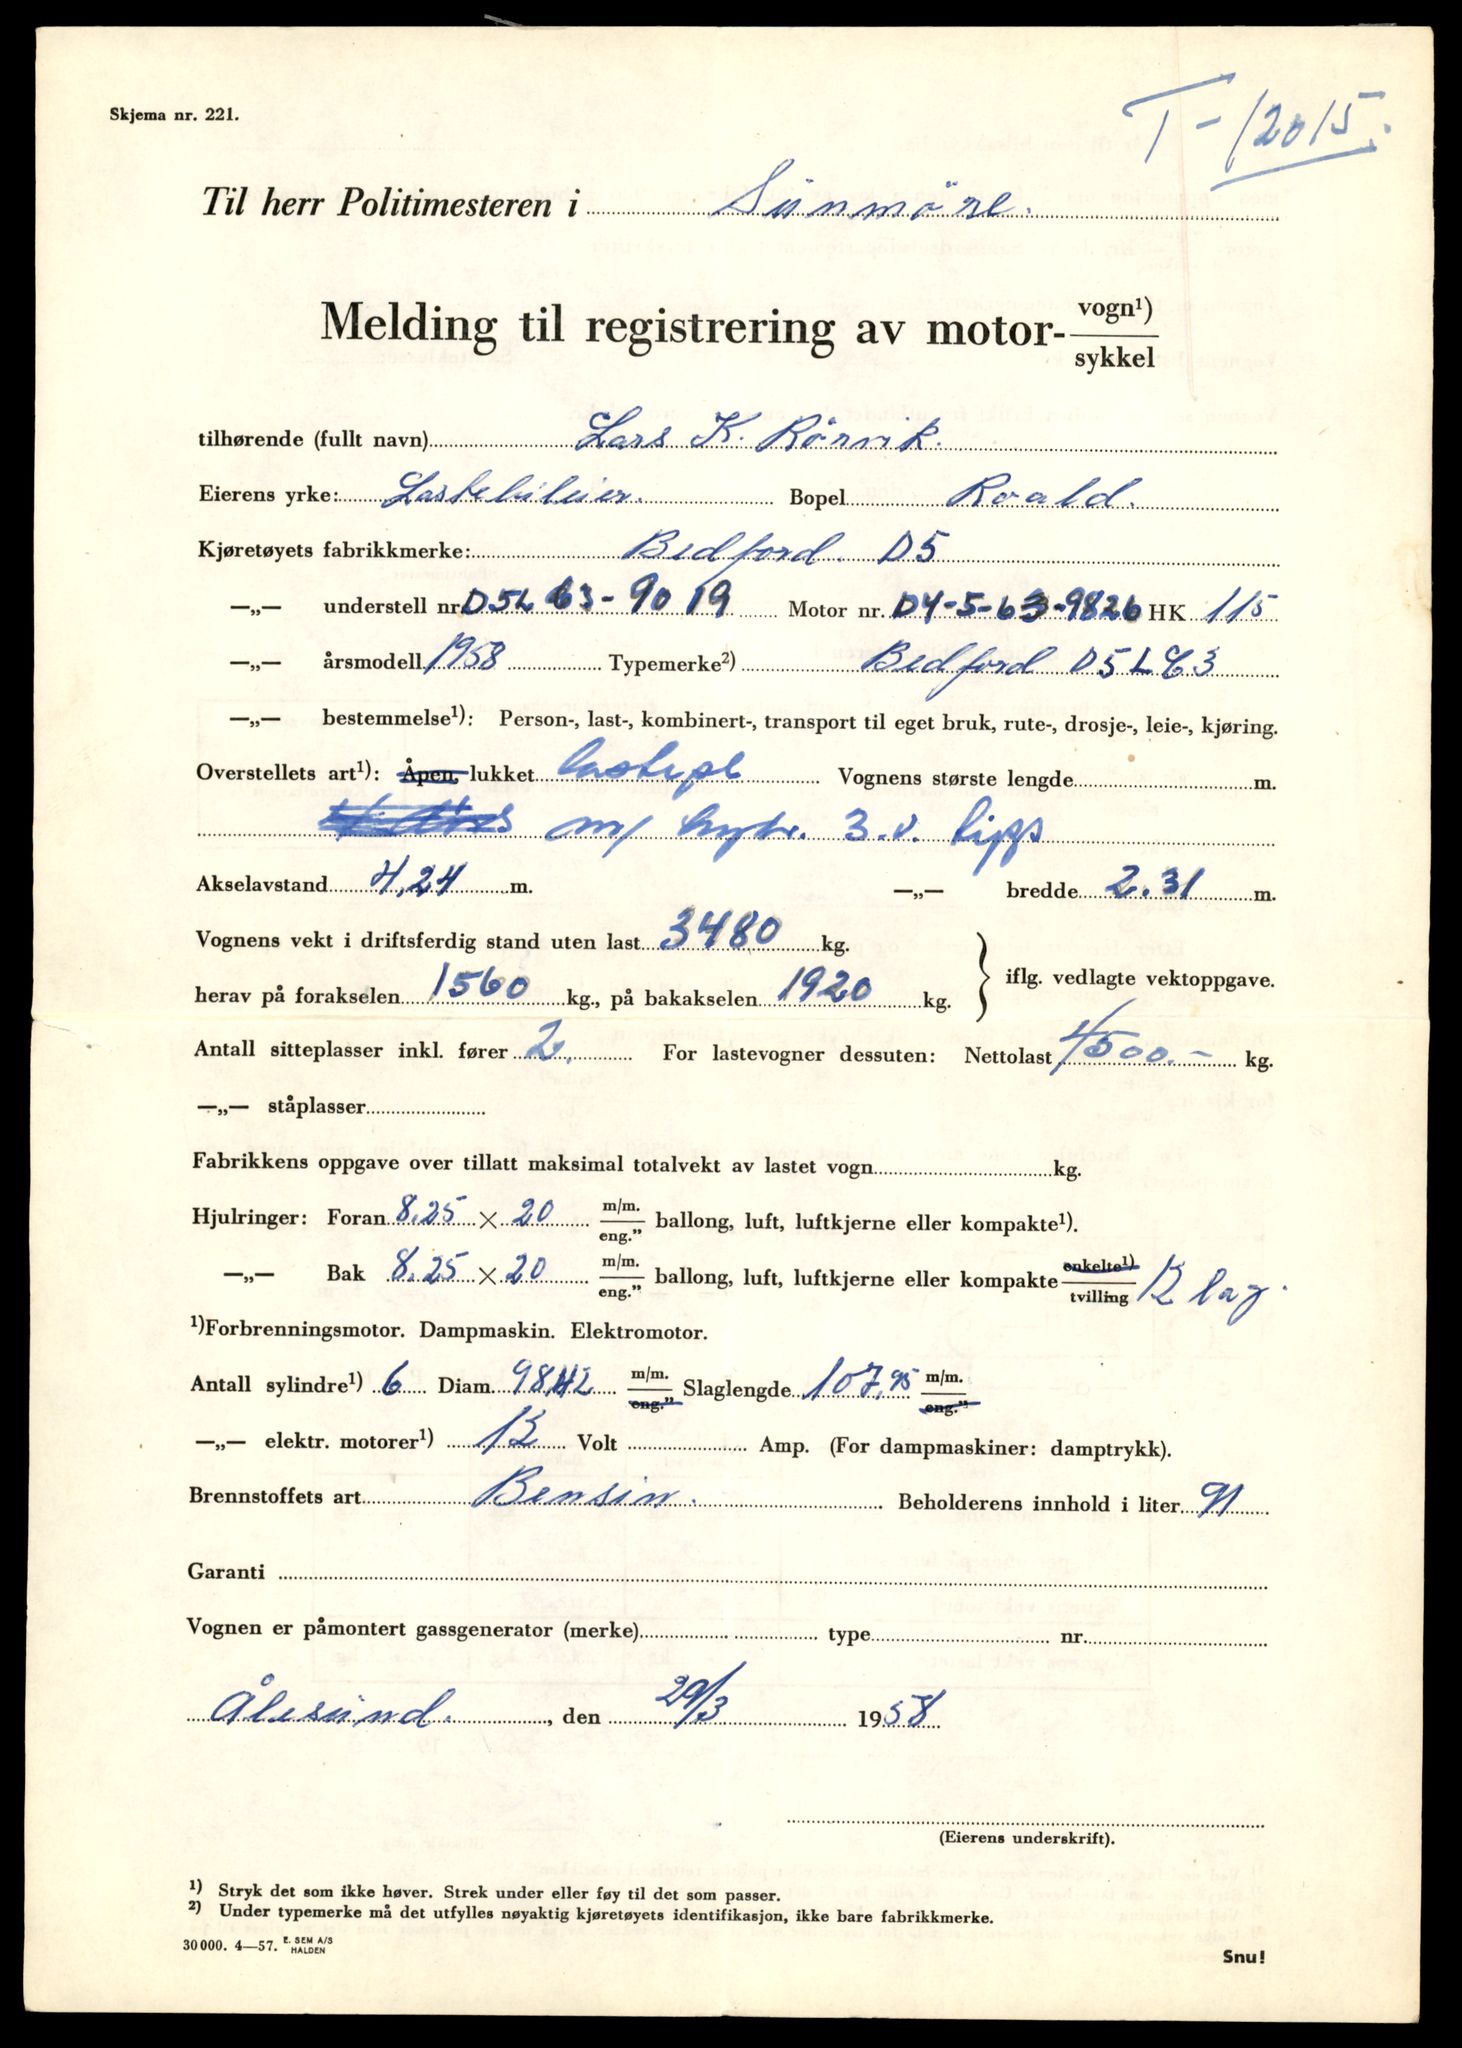 Skjema nr. 221.
T-12015.
Til herr Politimesteren i Sünmöre.
Melding til registrering av motor- vogn¹) / sykkel
tilhørende (fullt navn) Lars K. Rörvik.
Eierens yrke: Lastebileier. Bopel Roald.
Kjøretøyets fabrikkmerke: Bedford. D5
—„— understell nr. D5L C3-9019 Motor nr. D4-5-63-9826 HK 115
—„— årsmodell 1958 Typemerke²) Bedford D5LC3
—„— bestemmelse¹): Person-, last-, kombinert-, transport til eget bruk, rute-, drosje-, leie-, kjøring.
Overstellets art¹): Åpen, lukket lastepl Vognens største lengde m.
m/ hydr. 3.v. tipp
Akselavstand 4,24 m. —„— bredde 2.31 m.
Vognens vekt i driftsferdig stand uten last 3480 kg.
herav på forakselen 1560 kg., på bakakselen 1920 kg. } iflg. vedlagte vektoppgave.
Antall sitteplasser inkl. fører 2. For lastevogner dessuten: Nettolast 4500.- kg.
—„— ståplasser
Fabrikkens oppgave over tillatt maksimal totalvekt av lastet vogn kg.
Hjulringer: Foran 8.25 × 20 m/m. / eng.” ballong, luft, luftkjerne eller kompakte¹).
—„— Bak 8.25 × 20 m/m. / eng.” ballong, luft, luftkjerne eller kompakte enkelte¹) / tvilling 12 lag.
¹)Forbrenningsmotor. Dampmaskin. Elektromotor.
Antall sylindre¹) 6 Diam. 98,42 m/m. / eng.” Slaglengde 107,95 m/m. / eng.”
—„— elektr. motorer¹) 12 Volt Amp. (For dampmaskiner: damptrykk).
Brennstoffets art Bensin. Beholderens innhold i liter 91
Garanti
Vognen er påmontert gassgenerator (merke) type nr.
Ålesünd., den 29/3 1958
(Eierens underskrift).
¹) Stryk det som ikke høver. Strek under eller føy til det som passer.
²) Under typemerke må det utfylles nøyaktig kjøretøyets identifikasjon, ikke bare fabrikkmerke.
30 000. 4—57. E. SEM A/S HALDEN
Snu!